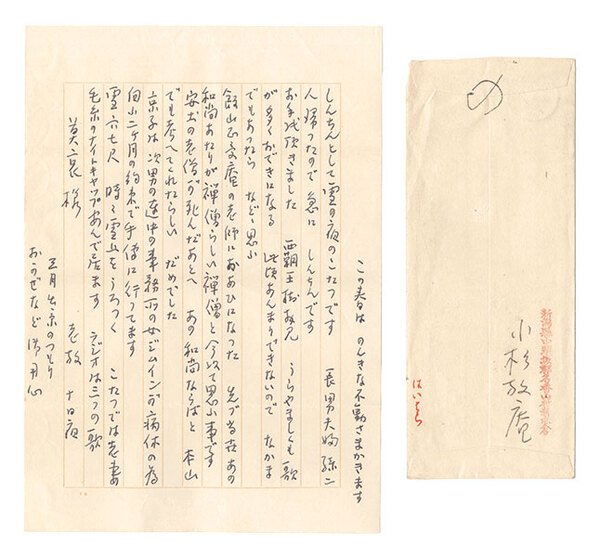 この春は のんきな不動さまかきます
しんちんとして雪の夜のこたつです 長男夫婦 孫二
人帰つたので 急に しんちんです
お手紙頂きました 覇王樹拝見 うらやましくも 歌
が多くおできになる 此頃あんまりできないので なかま
でもあつたら など 思ふ
飯山正受庵の老師におあひになつた 先づ当世あの
和尚あたりが 禅僧らしい禅僧と今以て思ふ事です
安土の老僧が死んだあとへ あの和尚ならばと 本山
でも考へてくれたらしい だめでした
京子は 次男の連中の事務所の女ジムインが病休の為
向ふ二ケ月の約束で手伝に行つてます
雪六七尺 時々雪山をうろつく こたつでは老妻
毛糸のナイトキャップあんで居ます ラジオは三つの歌
十日夜
老放
英哀様
三月出京のつもり
おかぜなど御用心
の
小杉放庵
はいそう